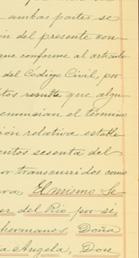 ambas partes se
ión del presente con-
que conforme al artículo
del Codigo Civil, por
tos resulte que algu-
renuncian el término
ción relativa estable
entos sesenta del
or transcurridos como
ra El mismo Se-
er del Rio por sí,
hermanos Doña
a Angela, Don